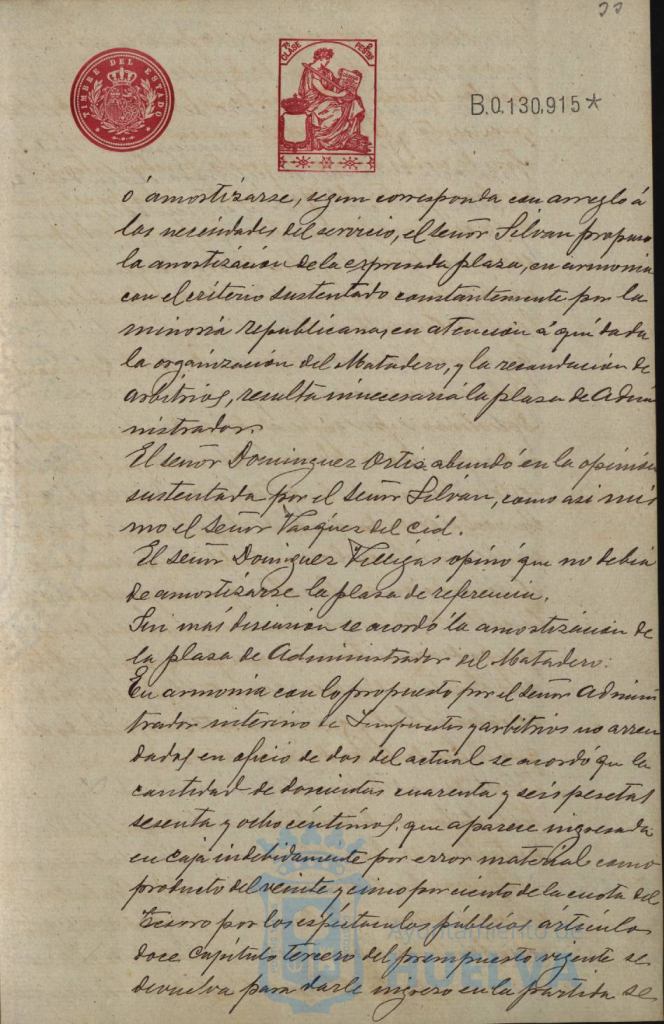 33
TIMBRE DEL ESTADO
7ª CLASE
PESETAS
B.0.130,915*
ó amortizarse, segun corresponda con arreglo á
las necesidades del servicio, el señor Silvan propuso
la amortización de la expresada plaza, en armonia
con el criterio sustentado constantemente por la
minoria republicana, en atención á qué dada
la organización del Matadero, y la recaudación de
arbitrios, resulta innecesaria la plaza de Admi
nistrador.
El señor Dominguez Ortiz abundó en la opinión
sustentada por el señor Silván, como asi mis
mo el señor Vazquez del Cid.
El señor Dominguez Villegas opinó que no debia
de amortizarse la plaza de referencia.
Sin más discusión se acordó la amostización de
la plaza de Administrador del Matadero.
En armonia con lo propuesto por el señor Adminis
trador interino de Impuestos y arbitrios no arren
dados en oficio de dos del actual se acordó que la
cantidad de doscientas cuarenta y seis pesetas
sesenta y ocho céntimos, que aparece ingresada
en caja indebidamente por error material como
producto del veinte y cinco por ciento de la cuota del
Tesoro por los espectaculos públicos artículo
doce Capítulo tercero del presupuesto vigente se
devuelva para darle ingreso en la partida se
Ayuntamiento de
HUELVA